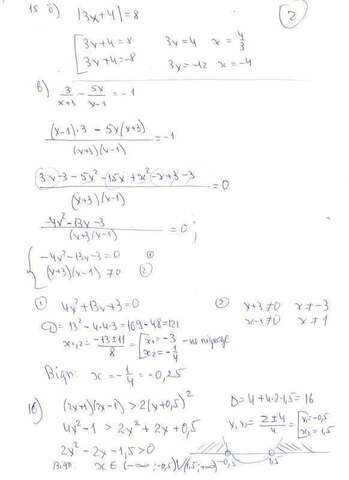 15 б) |3x+4|=8 2
[3x+4=8 3x=4 x=4/3
[3x+4=-8 3x=-12 x=-4
в) 3/(x+3) - 5x/(x-1) = -1
((x-1)·3 - 5x(x+3))/((x+3)(x-1)) = -1
(3x-3-5x²-15x+x²-x+3-3)/((x+3)(x-1)) = 0
(-4x²-13x-3)/((x+3)(x-1)) = 0 ;
{-4x²-13x-3=0 ①
{(x+3)(x-1)≠0 ②
① 4x²+13x+3=0 ② x+3≠0 x≠-3
D=13²-4·4·3=169-48=121 x-1≠0 x≠1
x₁,₂=(-13±11)/8=[x₁=-3 - не підходе
[x₂=-1/4
Відп: x=-1/4=-0,25
16) (2x+1)(2x-1)>2(x+0,5)² D=4+4·2·1,5=16
4x²-1>2x²+2x+0,5 x₁,x₂=(2±4)/4=[x₁=-0,5
[x₂=1,5
2x²-2x-1,5>0 -0,5 1,5
Відп x∈(-∞;-0,5)∪(1,5;+∞)